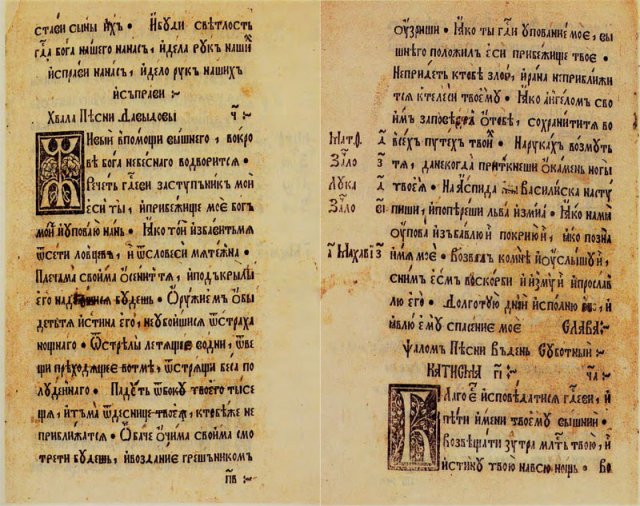 стави сыны ихъ • Ибуди свѣтлость
гда бога нашего нанасъ, идела рукъ наши
исправи нанасъ, идело рукъ нашихъ
исправи :~
Хвала Пѣсни Давыдовы ч҃ :~
Живый впомощи вышнего, вокро
вѣ бога небеснаго водворится •
Речеть гдеви заступъникъ мой
еси ты, иприбежище мое богъ
мой иуповаю нань • Яко той избавитьмя
ѿсети ловъчъ, и ѿсловеси мятежна •
Плечама своима осенит тя, иподъкрылы
его будешь • Оружиемъ обы
детьтя истина его, неубоишися ѿстраха
нощнаго • Ѿстрелы летящее водни, ѿве
щи преходящее вотме, ѿстрящи беса по
луденнаго • Падуть ѿбоку твоего тысе
ща, итьма ѿдеснице твоея, ктобеже не
приближатся • Обаче очима своима смо
трети будешь, ивоздание грешьникомъ
пв :~
оузриши • Яко ты гди упование мое, вы
шнего положил еси прибежище твое •
Непридеть ктобѣ злое, ирана неприближи
тся ктелеси твоему • Яко ангеломъ сво
имъ заповесть отобѣ, сохранитити во
Матф д всехъ путехъ твои • Нарукахъ возмуть
Зало д тя, данекогда приткнеши окамень ногы
Лука д твоея • На Аспида и Василиска насту
Зало еі пиши, ипопереши льва измиа • Яко намя
упова избавлю и покрию и, яко позна
г Махавѣі з имя мое • Возвалъ комнѣ иоуслышу и,
снимъ есмъ воскорби иизму и прослав
лю его • Долготую дний исполню его, и
явлю ему спасение мое СЛАВА:~
Ψаломъ Пѣсни Въдень Суботный :~
КАТИСМА гі :~ ча :~
Благо е исповѣдатися гдеви, и
пѣти имени твоему вышний •
Возвѣщати зутра млть твою, и
истину твою навсю нощь • Во